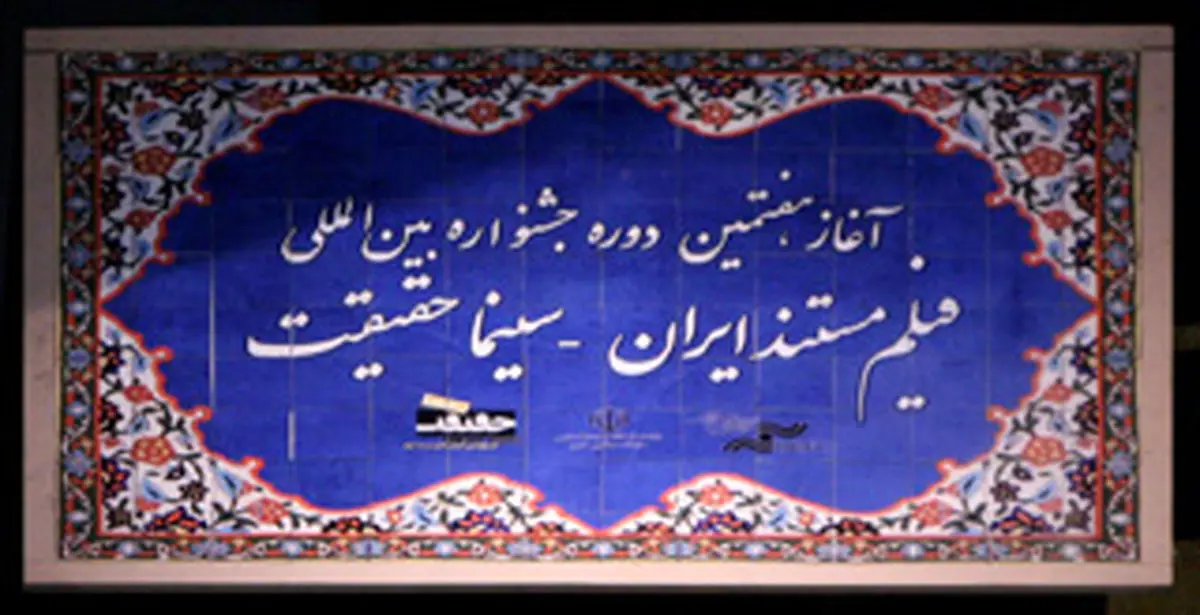 آغاز هفتمین دوره جشنواره بین‌المللی
فیلم مستند ایران - سینما حقیقت
حقیقت